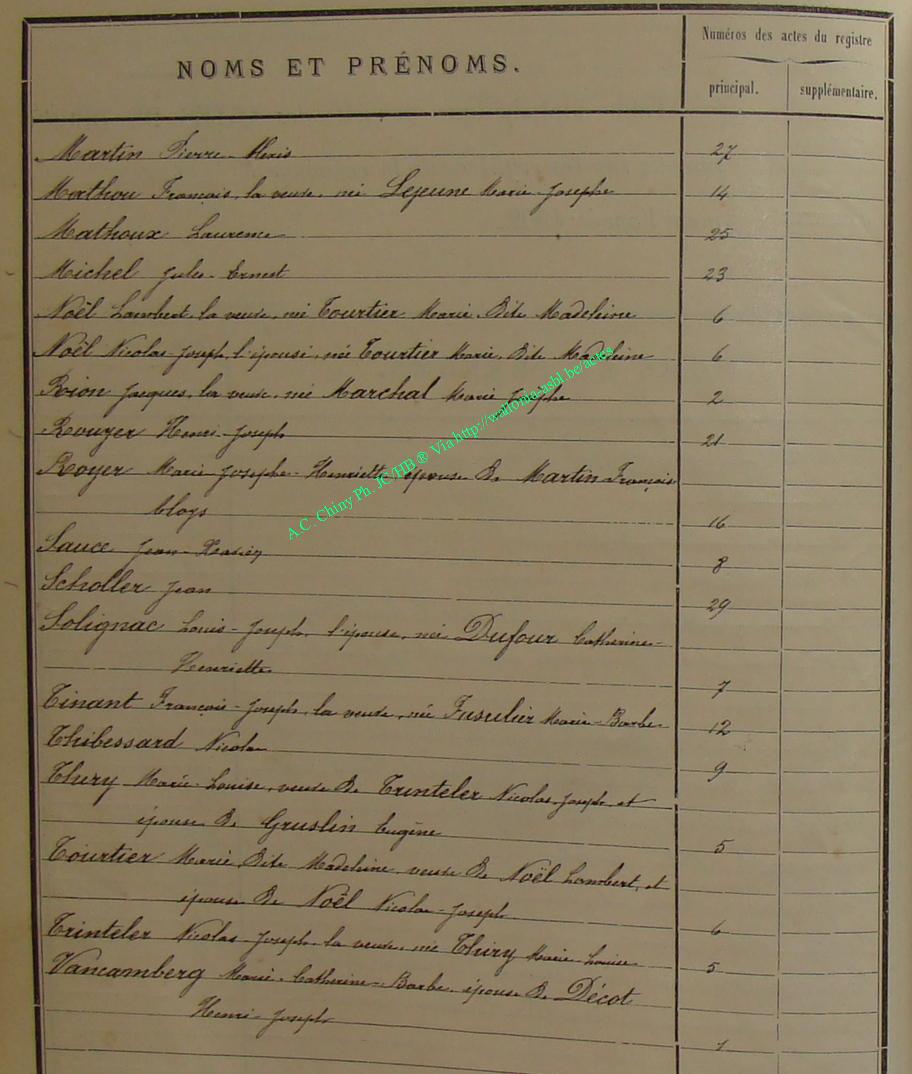 NOMS ET PRÉNOMS.
Numéros des actes du registre
principal.
supplémentaire.
Martin Pierre-Alexis 27
Mathou François, la veuve, née Lejeune Marie-Josephe 14
Mathoux Laurence 25
Michel Jules-Ernest 23
Noël Lambert, la veuve, née Tourtier Marie, Dite Madeleine 6
Noël Nicolas-Joseph, l'épouse, née Tourtier Marie, Dite Madeleine 6
Rion Jacques, la veuve, née Marchal Marie Josèphe 2
Rouyer Henri-Joseph 21
Royer Marie Josephe-Henriette, épouse de Martin François
Eloys 16
Sauce Jean- 8
Scholler Jean 29
Solignac Louis-Joseph, l'épouse, née Dufour Catherine-
Henriette 7
Tinant François-Joseph, la veuve, née Fusulier Marie-Barbe 12
Thibessard Nicolas 9
Thiry Marie-Louise, veuve de Trinteler Nicolas-Joseph, et
épouse de Gruslin Eugène 5
Tourtier Marie Dite Madeleine, veuve de Noël Lambert, et
épouse de Noël Nicolas-Joseph 6
Trinteler Nicolas-Joseph, la veuve, née Thiry Marie-Louise 5
Vancamberg Marie-Catherine-Barbe, épouse de Décot
Henri-Joseph 1
A.C. Chiny Ph. JC/HB ® Via http://wallonia-asbl.be/actes